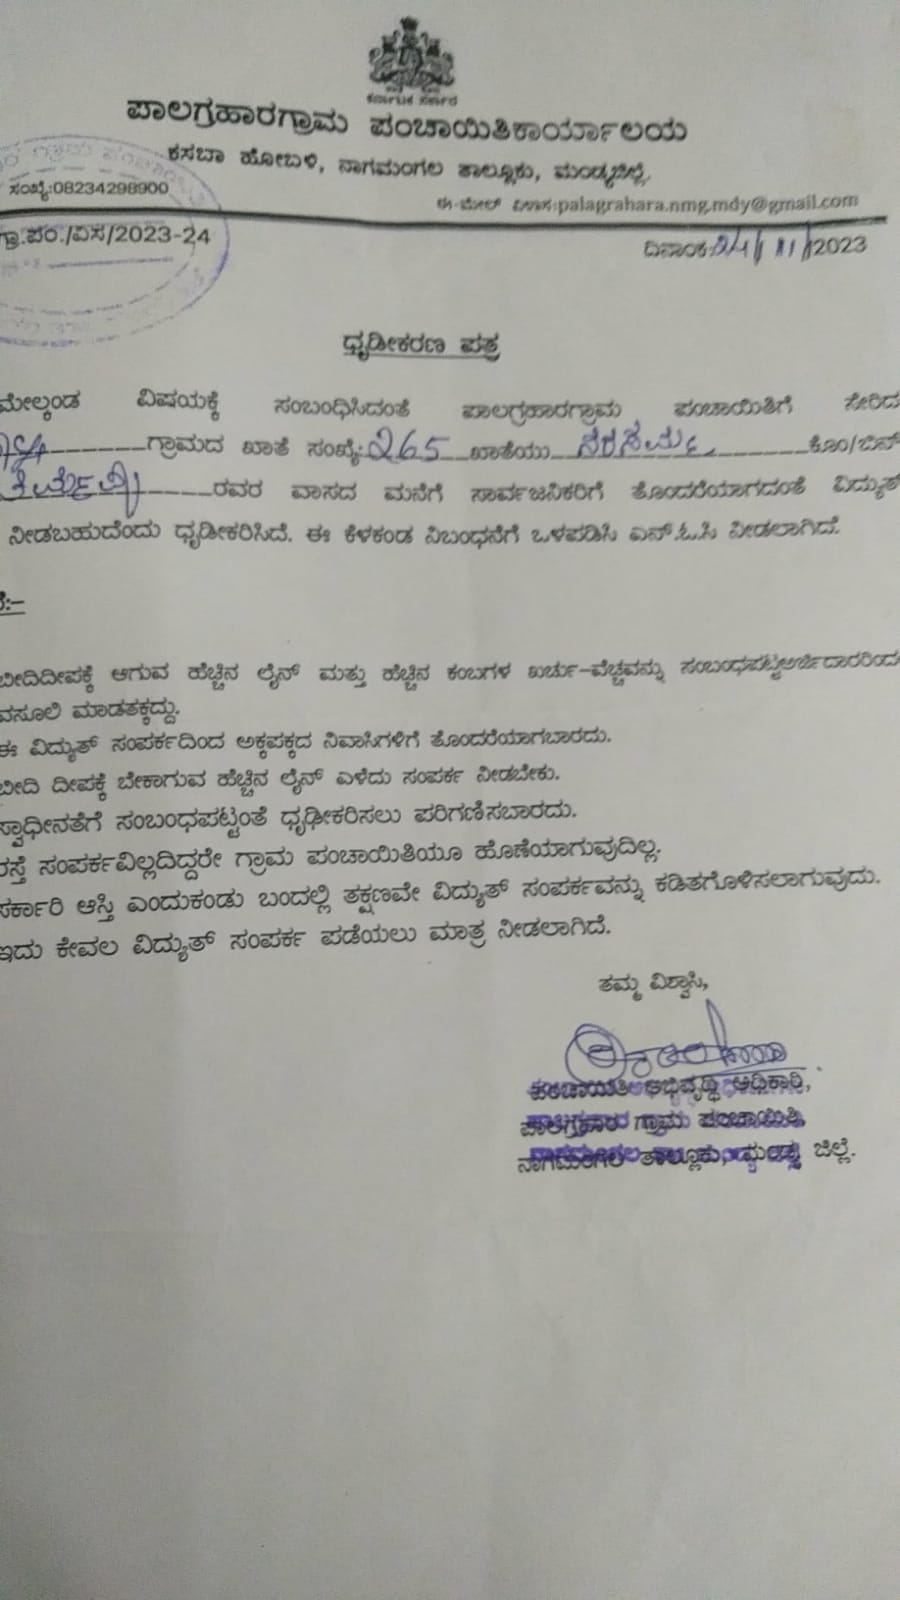 ಕರ್ನಾಟಕ ಸರ್ಕಾರ
ಪಾಲಗ್ರಹಾರಗ್ರಾಮ ಪಂಚಾಯಿತಿಕಾರ್ಯಾಲಯ
ಕಸಬಾ ಹೋಬಳಿ, ನಾಗಮಂಗಲ ತಾಲ್ಲೂಕು, ಮಂಡ್ಯಜಿಲ್ಲೆ.
ಸಂಖ್ಯೆ:08234298900
ಈ-ಮೇಲ್ ವಿಳಾಸ:palagrahara.nmg.mdy@gmail.com
ಗ್ರಾ.ಪಂ./ವಿಸ/2023-24
ದಿನಾಂಕ:24/11/2023
ಧೃಡೀಕರಣ ಪತ್ರ
ಮೇಲ್ಕಂಡ ವಿಷಯಕ್ಕೆ ಸಂಬಂಧಿಸಿದಂತೆ ಪಾಲಗ್ರಹಾರಗ್ರಾಮ ಪಂಚಾಯಿತಿಗೆ ಸೇರಿದ
ಗ್ರಾಮದ ಖಾತೆ ಸಂಖ್ಯೆ:265 ಖಾತೆಯು ನರಸಮ್ಮ ಕೋಂ/ಬಿನ್
ರವರ ವಾಸದ ಮನೆಗೆ ಸಾರ್ವಜನಿಕರಿಗೆ ತೊಂದರೆಯಾಗದಂತೆ ವಿದ್ಯುತ್
ನೀಡಬಹುದೆಂದು ಧೃಡೀಕರಿಸಿದೆ. ಈ ಕೆಳಕಂಡ ನಿಬಂಧನೆಗೆ ಒಳಪಡಿಸಿ ಎನ್.ಓ.ಸಿ ನೀಡಲಾಗಿದೆ.
ಬೀದಿದೀಪಕ್ಕೆ ಆಗುವ ಹೆಚ್ಚಿನ ಲೈನ್ ಮತ್ತು ಹೆಚ್ಚಿನ ಕಂಬಗಳ ಖರ್ಚು-ವೆಚ್ಚವನ್ನು ಸಂಬಂಧಪಟ್ಟಅರ್ಜಿದಾರರಿಂದ
ವಸೂಲಿ ಮಾಡತಕ್ಕದ್ದು.
ಈ ವಿದ್ಯುತ್ ಸಂಪರ್ಕದಿಂದ ಅಕ್ಕಪಕ್ಕದ ನಿವಾಸಿಗಳಿಗೆ ತೊಂದರೆಯಾಗಬಾರದು.
ಬೀದಿ ದೀಪಕ್ಕೆ ಬೇಕಾಗುವ ಹೆಚ್ಚಿನ ಲೈನ್ ಎಳೆದು ಸಂಪರ್ಕ ನೀಡಬೇಕು.
ಸ್ವಾಧೀನತೆಗೆ ಸಂಬಂಧಪಟ್ಟಂತೆ ಧೃಢೀಕರಿಸಲು ಪರಿಗಣಿಸಬಾರದು.
ರಸ್ತೆ ಸಂಪರ್ಕವಿಲ್ಲದಿದ್ದರೇ ಗ್ರಾಮ ಪಂಚಾಯಿತಿಯೂ ಹೊಣೆಯಾಗುವುದಿಲ್ಲ.
ಸರ್ಕಾರಿ ಆಸ್ತಿ ಎಂದುಕಂಡು ಬಂದಲ್ಲಿ ತಕ್ಷಣವೇ ವಿದ್ಯುತ್ ಸಂಪರ್ಕವನ್ನು ಕಡಿತಗೊಳಿಸಲಾಗುವುದು.
ಇದು ಕೇವಲ ವಿದ್ಯುತ್ ಸಂಪರ್ಕ ಪಡೆಯಲು ಮಾತ್ರ ನೀಡಲಾಗಿದೆ.
ತಮ್ಮ ವಿಶ್ವಾಸಿ,
ಪಂಚಾಯಿತಿ ಅಭಿವೃದ್ಧಿ ಅಧಿಕಾರಿ,
ಪಾಲಗ್ರಹಾರ ಗ್ರಾಮ ಪಂಚಾಯಿತಿ,
ನಾಗಮಂಗಲ ತಾಲ್ಲೂಕು, ಮಂಡ್ಯ ಜಿಲ್ಲೆ.